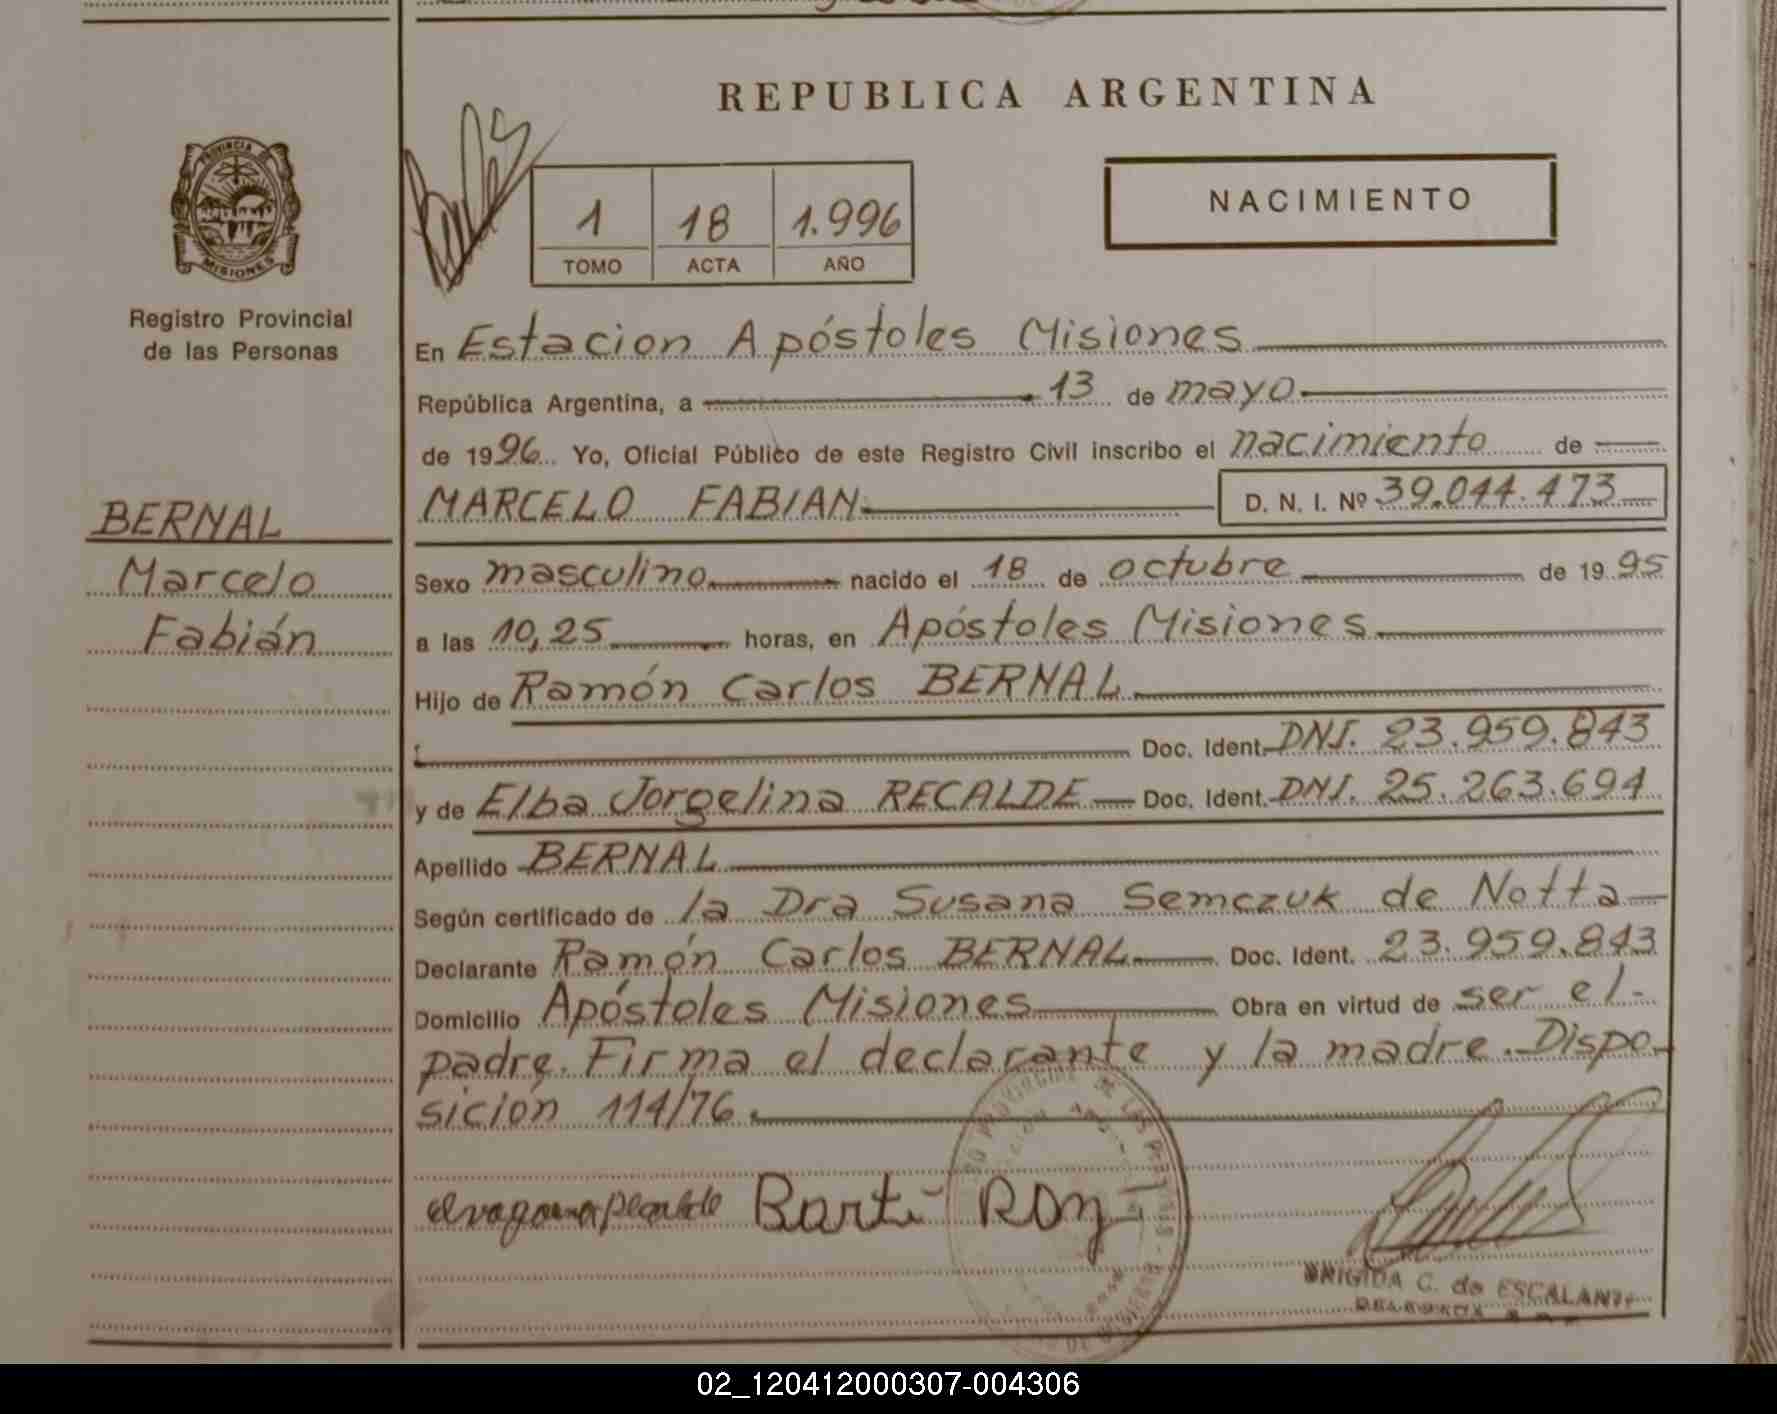 REPUBLICA ARGENTINA
PROVINCIA
MISIONES
Registro Provincial
de las Personas
1 18 1.996
TOMO ACTA AÑO
NACIMIENTO
En Estacion Apóstoles Misiones
República Argentina, a 13 de mayo
de 1996 Yo, Oficial Público de este Registro Civil inscribo el nacimiento de
MARCELO FABIAN D. N. I. Nº 39.044.473
BERNAL
Marcelo
Fabián
Sexo masculino nacido el 18 de octubre de 1995
a las 10,25 horas, en Apóstoles Misiones
Hijo de Ramón Carlos BERNAL
Doc. Ident. DNI. 23.959.843
y de Elba Jorgelina RECALDE Doc. Ident. DNI. 25.263.694
Apellido BERNAL
Según certificado de la Dra Susana Semczuk de Notta
Declarante Ramón Carlos BERNAL Doc. Ident. 23.959.843
Domicilio Apóstoles Misiones Obra en virtud de ser el
padre. Firma el declarante y la madre. Dispo-
sicion 114/76.
BRIGIDA C. de ESCALANTE
02_120412000307-004306